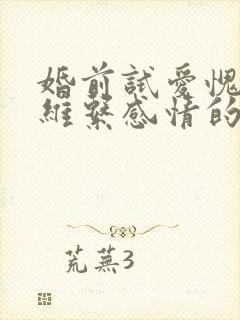 婚前試愛愧
維繫感情的
荒蕪3